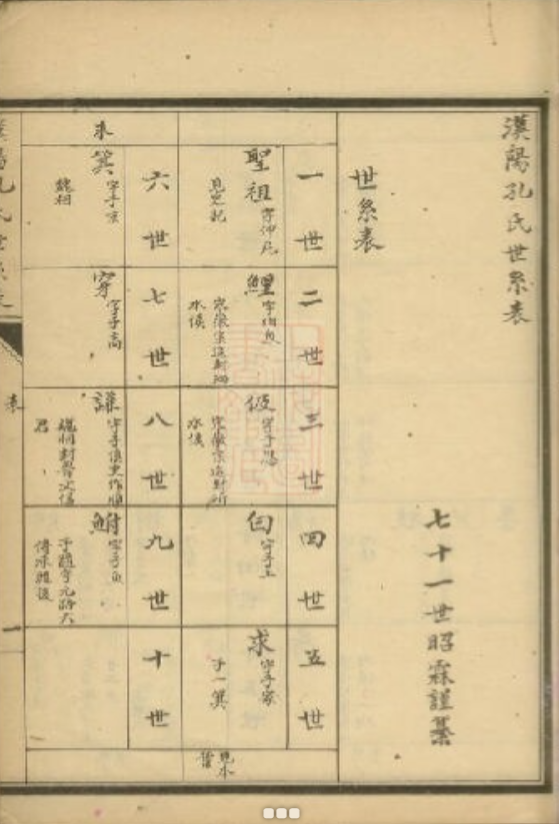 漢陽孔氏世系表
七十一世昭霖謹纂
世系表
一世
聖祖 字仲尼
見史記
二世
鯉 字伯魚
宋徽宗追封泗
水侯
三世
伋 字子思
宋徽宗追封沂
水侯
四世
白 字子上
五世
求 字子家
子一箕
見本
葉
求
六世
箕 字子京
魏相
七世
穿 字子高
八世
謙 字子慎史作順
魏相封魯文信
君
九世
鮒 字子魚
子隨字元路大
傳承襲後
十世
漢陽孔氏世系表
表
一